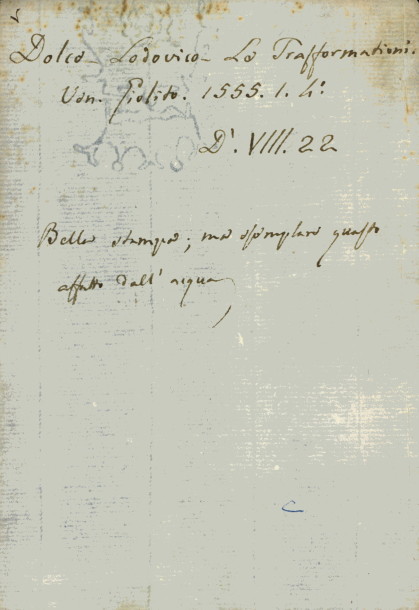 Dolce Lodovico Le Trasformationi.
Ven. Giolito. 1555. 1. 4.º
D'. VIII. 22
Bella stampa; ma esemplare guasto
affatto dall' acqua